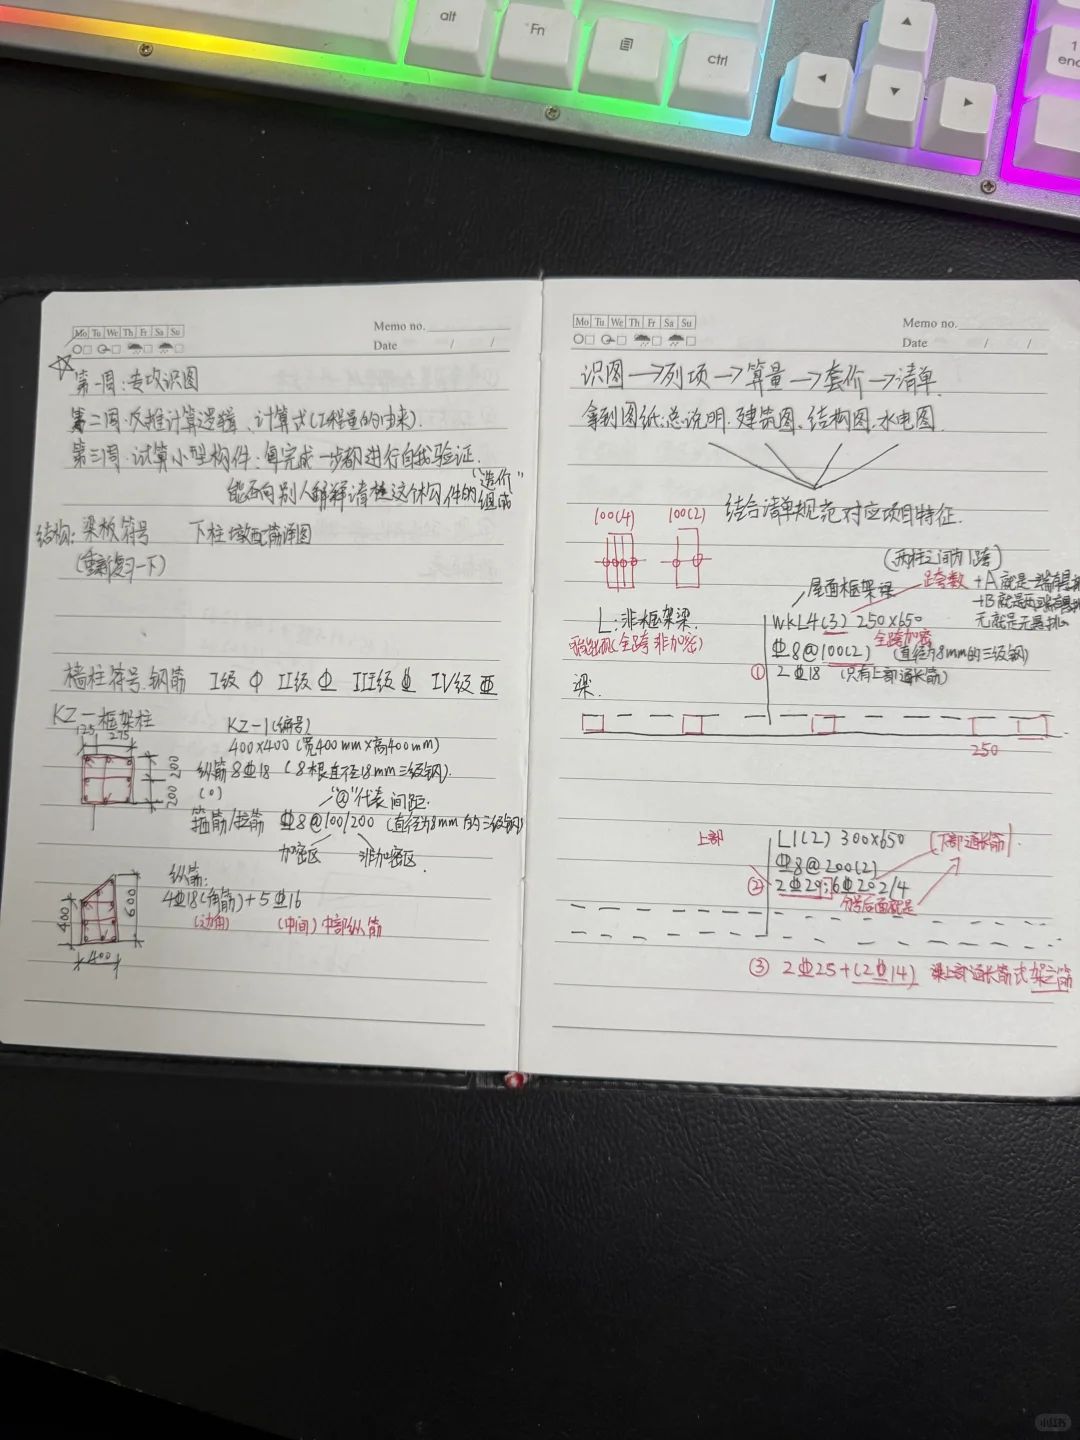 alt
Fn
ctrl
1
end
Mo Tu We Th Fr Sa Su
Memo no.
Date / /
第一周:专攻识图
第二周:反推计算逻辑、计算式(工程量的由来).
第三周:试算小型构件:每完成一步都进行自我验证.
能否向别人解释清楚这个构件的"造价"组成
结构:梁板符号 下柱墩配筋详图
(重新复习一下)
墙柱符号.钢筋 I级 Φ II级 III级 IV级
KZ—框架柱
125 275
200
200
KZ-1(编号)
400×400(宽400mm×高400mm)
纵筋 8⏀18 (8根直径18mm三级钢).
"@"代表间距.
箍筋/拉筋 ⏀8@100/200 (直径为8mm的三级钢)
加密区 非加密区.
纵筋:
4⏀18(角筋)+5⏀16
(边角) (中间)中部纵筋
400
600
400
Mo Tu We Th Fr Sa Su
Memo no.
Date / /
识图→列项→算量→套价→清单.
拿到图纸:总说明.建筑图、结构图.水电图.
结合清单规范对应项目特征.
100(4) 100(2)
(两柱之间为1跨)
屋面框架梁
跨数 +A就是一端有悬挑
+B就是两端有悬挑
无就是无悬挑
L:非框架梁.
(全跨非加密)
WKL4(3) 250×650
全跨加密
⏀8@100(2) (直径为8mm的三级钢)
① 2⏀18 (只有上部通长筋)
梁.
250
上部
L1(2) 300×650
下部通长筋
⏀8@200(2)
② 2⏀20;6⏀20 2/4
分号后面就是
③ 2⏀25+(2⏀14) 梁上部通长筋式架立筋
小红书